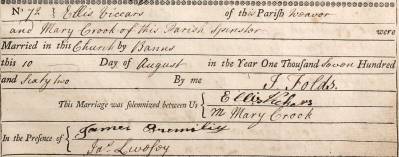 No 74 } Ellis Viccars of this Parish Weaver
and Mary Crook of this Parish Spinster were
Married in this Church by Banns
this 10 Day of August in the Year One Thousand Seven Hundred
and Sixty two By me J Folds.
This Marriage was solemnized between Us { Ellis Vickars
M Mary Crook
In the Presence of { James
Jas